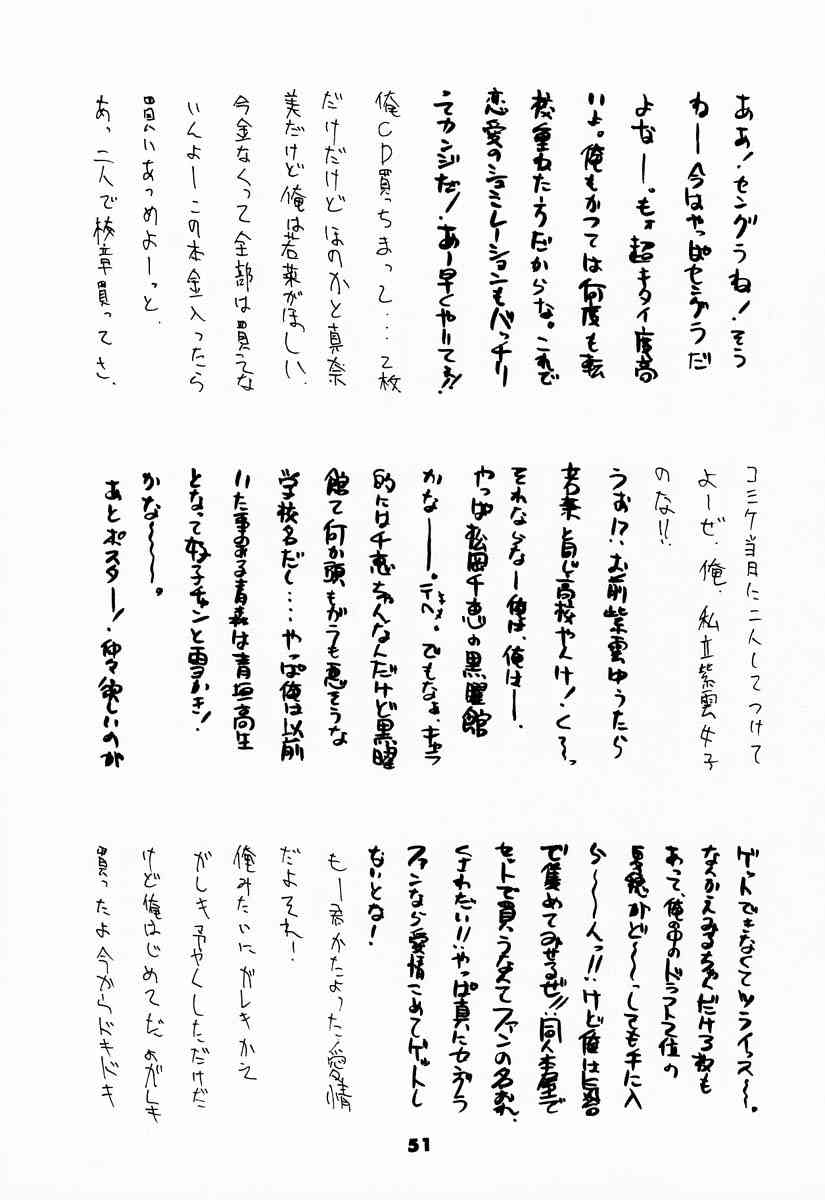 ああ!セングラね!そう
ねー今はやっぱセングラだ
よなー。もォ超キタイ度高
いよ。俺もかつては何度も転
校重ねたもうだからな。これで
恋愛のシュミレーションもバッチリ
ってカンジだ!あー早くやりてぇ!
俺CD買っちまって…2枚
だけだけど ほのかと真奈
美だけど俺は若菜がほしい.
今金なくって全部は買えな
いんよーこの本金入ったら
買いあつめよーっと.
あっ 二人で校章買ってさ.
コミケ当日に二人してつけて
よーぜ.俺.私立紫雲女子
のな!!
うぉ!?お前紫雲ゆうたら
若菜と同じ高校やんけ!く〜っ
それならなー俺は、俺はー.
やっぱ松岡千恵の黒曜館
かなー。テヘ。でもなぁ、キャラ
的には千恵ちゃんなんだけど黒曜
館て何か頭もがらも悪そうな
学校名だし…やっぱ俺は以前
いた事のある青森は青垣高生
となって妙子チャンと雪かき!
かな〜〜。
あとポスター!仲々欲しいのが
ゲットできなくてツライッス〜。
なんかえみるちゃんだけ3枚も
あって、俺の中のドラフト2位の
夏穂がど〜〜っしても手に入
ら〜〜んっ!!けど俺は
で集めてみせるぜ!!同人本屋で
セットで買うなんてファンの名おれ.
くさわたい!!やっぱ真にセングラ
ファンなら愛情こめてゲットし
ないとな!
もー君かたよった愛情
だよそれー!
俺みたいにガレキかえ
ガレキ予やくしただけだ
けど俺はじめてだよガレキ
買ったよ今からドキドキ
51